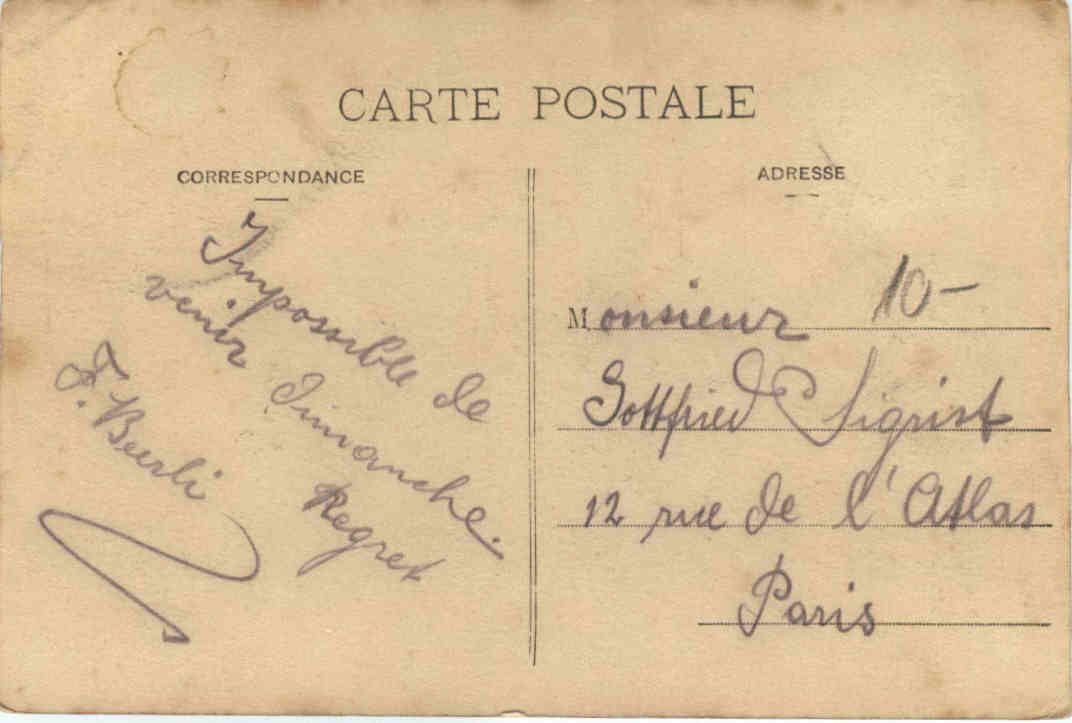 CARTE POSTALE
CORRESPONDANCE
Impossible de
venir dimanche.
Regret
F. Beerli
ADRESSE
10-
Monsieur
Gottfried Sigrist
12 rue de l'Atlas
Paris